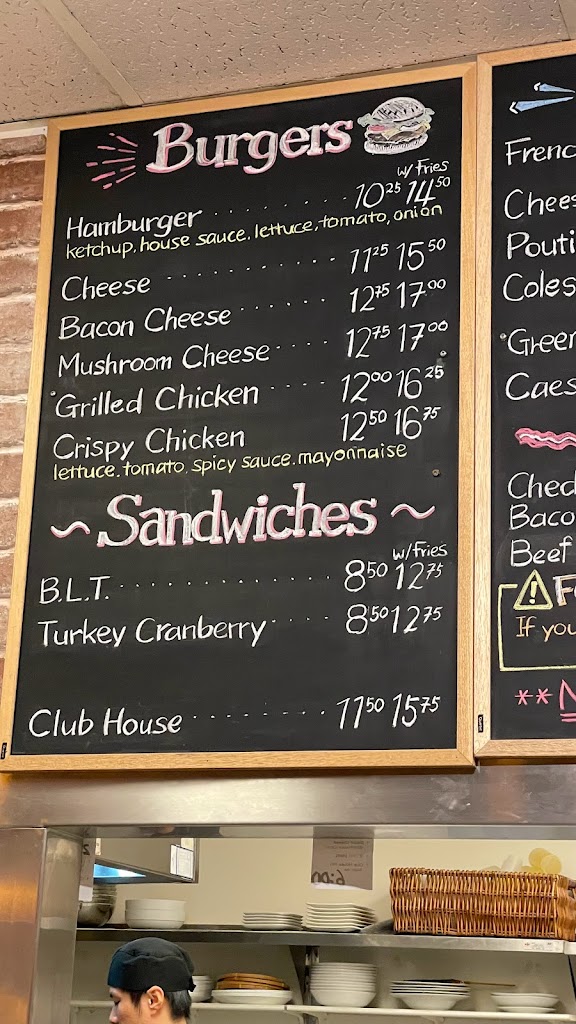 Burgers
w/ Fries
Hamburger ........ 10 25 14 50
ketchup. house sauce. lettuce, tomato, onion
Cheese ........... 11 25 15 50
Bacon Cheese ...... 12 75 17 00
Mushroom Cheese .... 12 75 17 00
Grilled Chicken .... 12 00 16 25
Crispy Chicken 12 50 16 75
lettuce. tomato. spicy sauce. mayonnaise
~ Sandwiches ~
w/ fries
B.L.T. .............. 8 50 12 75
Turkey Cranberry .... 8 50 12 75
Club House .......... 11 50 15 75
Frenc
Chees
Pouti
Coles
Green
Caes
Ched
Baco
Beef
If you
**